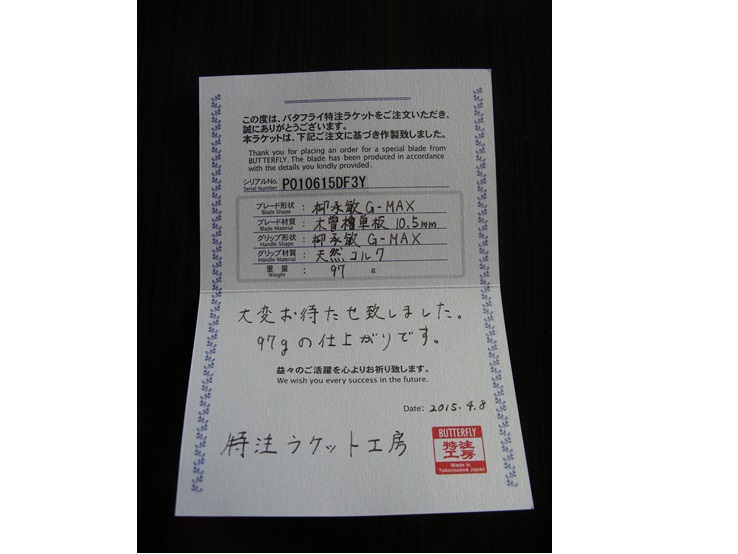 この度は、バタフライ特注ラケットをご注文いただき、
誠にありがとうございます。
本ラケットは、下記ご注文に基づき作製致しました。
Thank you for placing an order for a special blade from
BUTTERFLY. The blade has been produced in accordance
with the details you kindly provided.
シリアルNo. P010615DF3Y
Serial Number
ブレード形状 : 柳承敏 G-MAX
Blade Shape
ブレード材質 : 木曽檜単板 10.5mm
Blade Material
グリップ形状 : 柳承敏 G-MAX
Handle Shape
グリップ材質 : 天然コルク
Handle Material
重量 : 97 g
Weight
大変お待たせ致しました。
97gの仕上がりです。
益々のご活躍を心よりお祈り致します。
We wish you every success in the future.
Date: 2015.4.8
特注ラケット工房
BUTTERFLY
特注
工房
Made in
Tokorozawa Japan